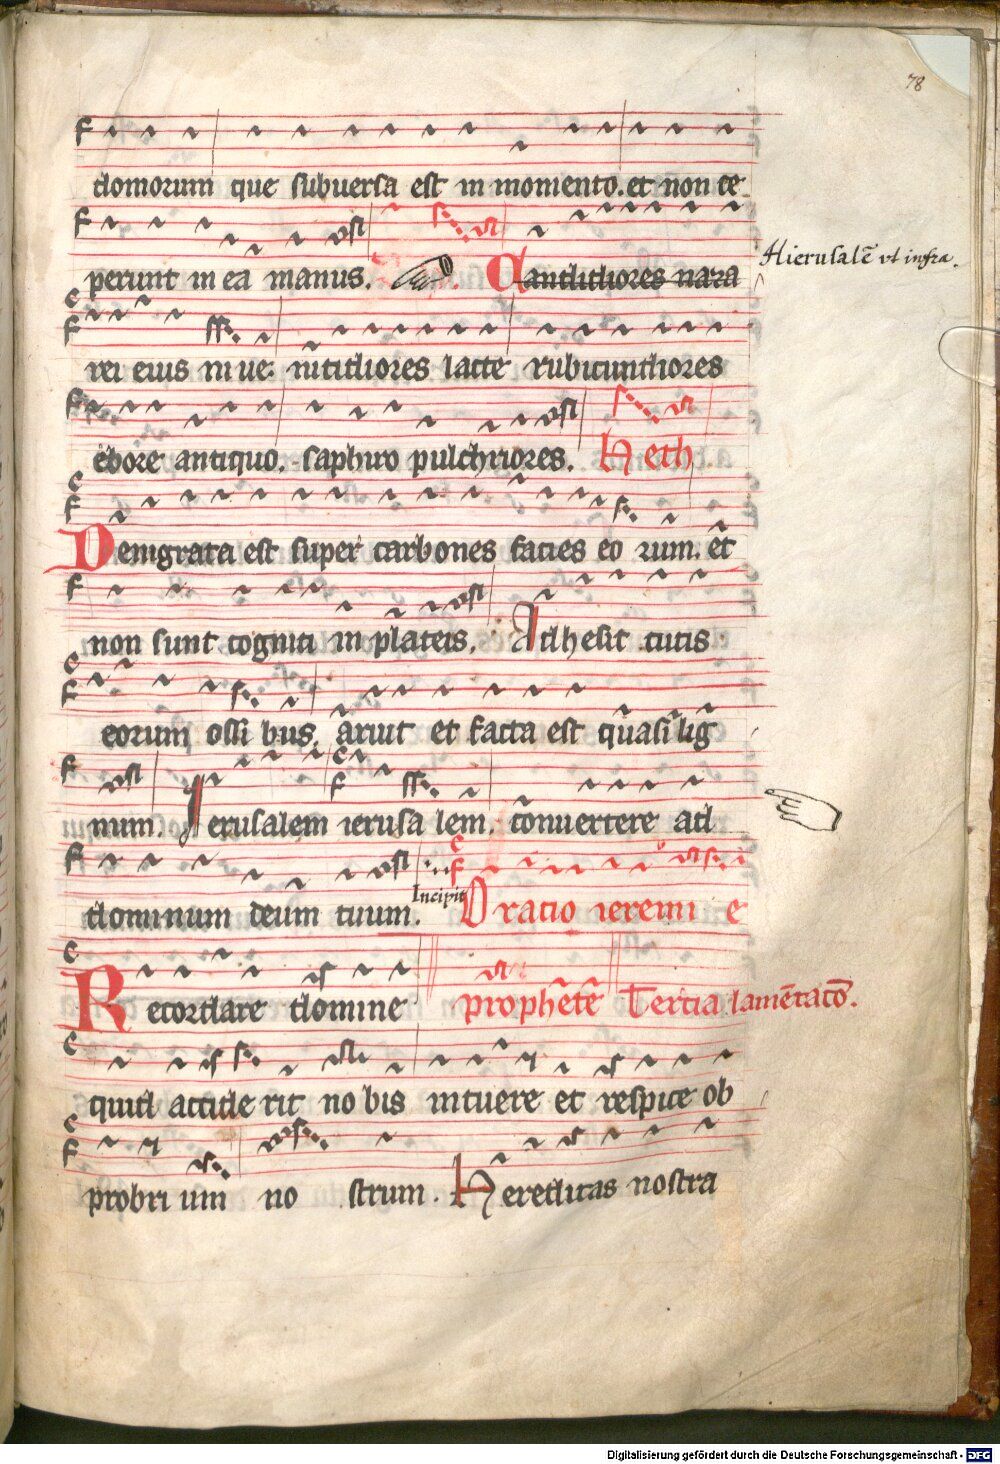 78
domorum que subuersa est in momento. et non ce
perunt in eā manus. Candidiores naza
Hierusalē vt infra.
rei eius niue. nitidiores lacte rubicundiores
ebore antiquo. saphiro pulchriores. Heth
Denigrata est super carbones facies eorum. et
non sunt cogniti in plateis. Adhesit cutis
eorum ossibus. aruit et facta est quasi lig
num. Jerusalem ierusalem. conuertere ad
dominum deum tuum. Incipit Oratio ieremie
Recordare domine prophete Tercia lamētacō.
quid acciderit nobis intuere et respice ob
probrium nostrum. Hereditas nostra
Digitalisierung gefördert durch die Deutsche Forschungsgemeinschaft - DFG